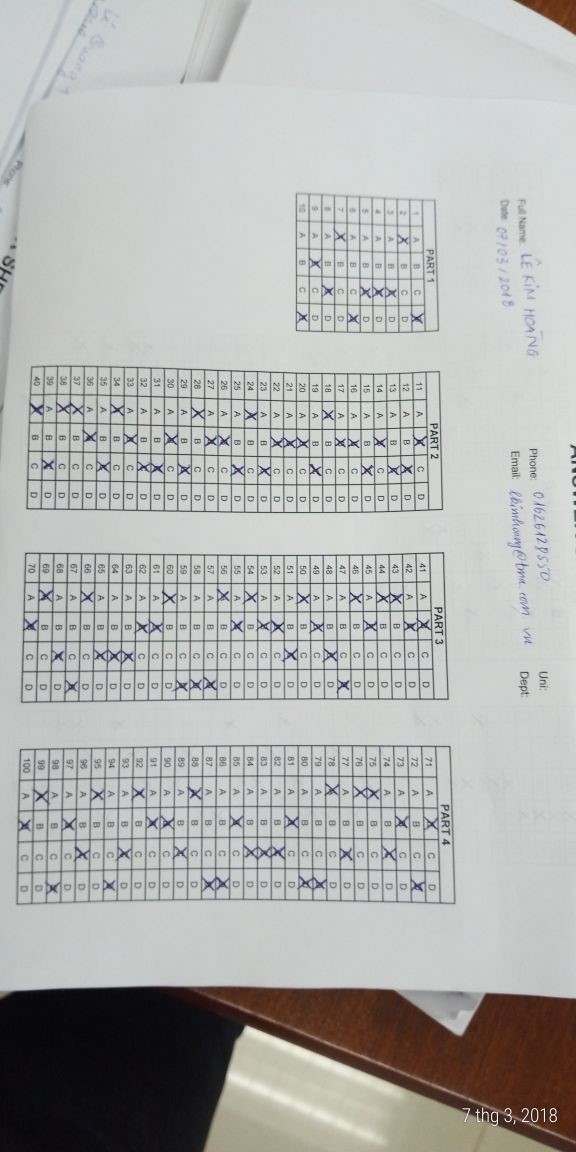 Full Name: LÊ KIM HOÀNG
Date: 07/03/2018
Phone: 01626129550
Email:
Uni:
Dept:
PART 1
1 A B C X
2 X B C D
3 A B X D
4 A B X D
5 A B X D
6 A B C X
7 X B C D
8 A B X D
9 A X C D
10 A B C X
PART 2
11 A X C D
12 A B X D
13 A B X D
14 A X C D
15 A B X D
16 A X C D
17 A X C D
18 X B C D
19 A B X D
20 A X C D
21 A X C D
22 A X C D
23 A B X D
24 X B C D
25 A B X D
26 A X C D
27 A X C D
28 X B C D
29 A B X D
30 A X C D
31 A B X D
32 A B X D
33 A X C D
34 X B C D
35 A B X D
36 A X C D
37 X B C D
38 X B C D
39 A B X D
40 X B C D
PART 3
41 A X C D
42 A X C D
43 X B C D
44 X B C D
45 A X C D
46 X B C D
47 A B C X
48 A B X D
49 A X C D
50 X B C D
51 A B X D
52 A X C D
53 A X C D
54 X B C D
55 A X C D
56 X B C D
57 A B C X
58 A B C X
59 A B C X
60 X B C D
61 A X C D
62 A X C D
63 A B X D
64 A B X D
65 A B X D
66 X B C D
67 A B C X
68 A B X D
69 X B C D
70 A X C D
PART 4
71 A X C D
72 A B C X
73 A X C D
74 A B X D
75 X B C D
76 X B C D
77 A B X D
78 X B C D
79 A B C X
80 A B C X
81 A X C D
82 A B X D
83 A B X D
84 A B X D
85 A X C D
86 A B C X
87 A B C X
88 X B C D
89 A B X D
90 A X C D
91 A X C D
92 X B C D
93 A B X D
94 A B C X
95 X B C D
96 A B X D
97 A X C D
98 A B C X
99 X B C D
100 A X C D
7 thg 3, 2018